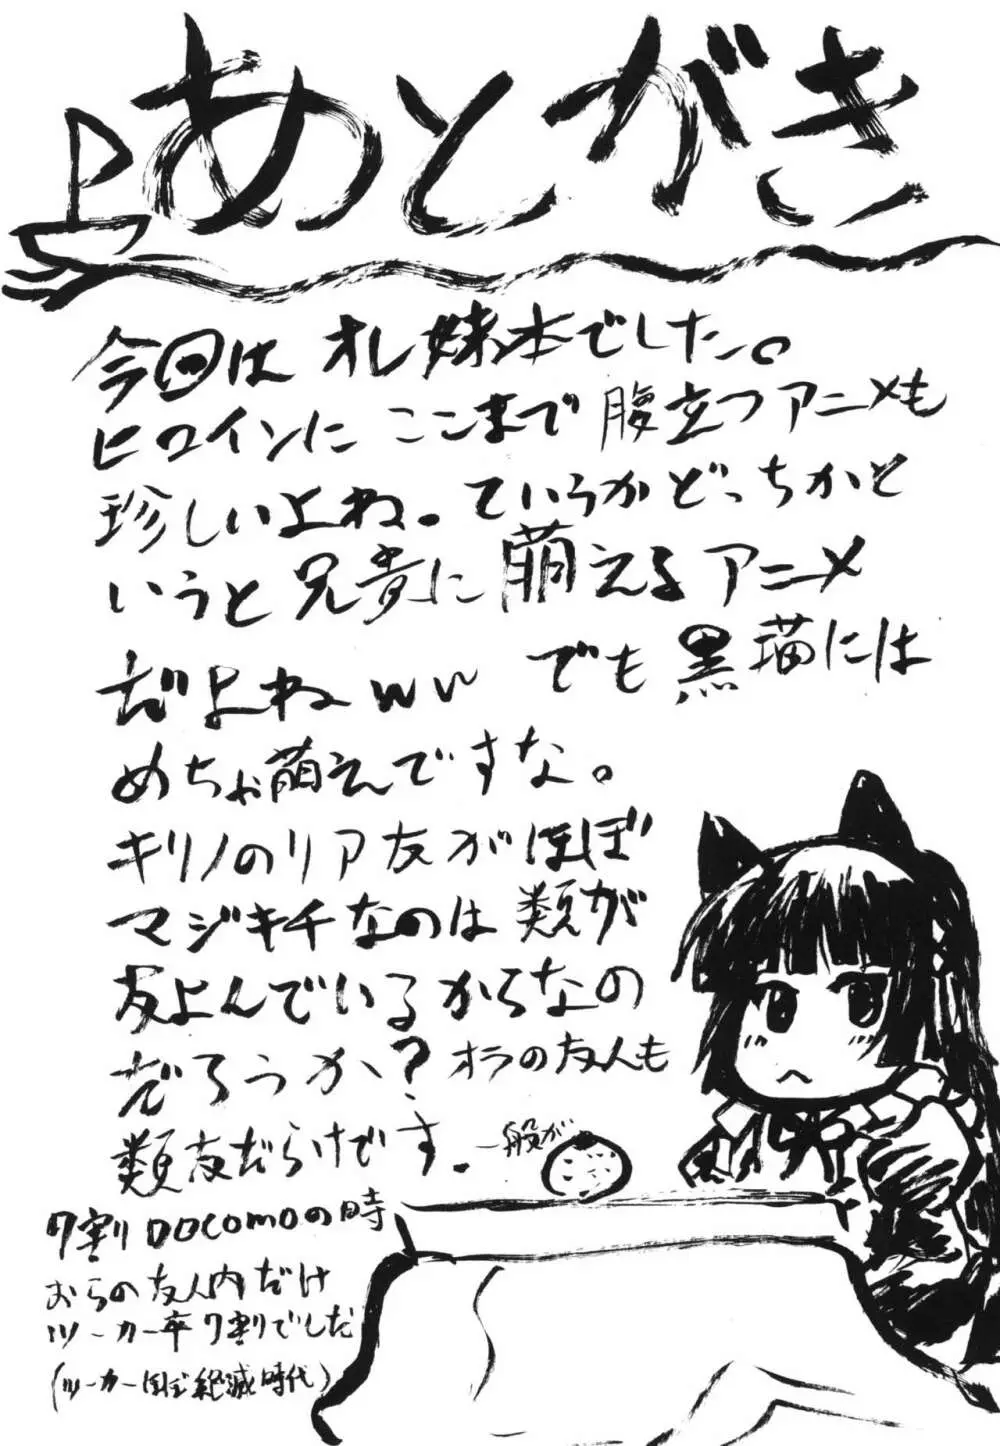 あとがき
今回はオレ妹本でした。
ヒロインにここまで腹立つアニメも
珍しいよね。ていうかどっちかと
いうと兄貴に萌えるアニメ
だよねww でも黒猫には
めちゃ萌えですな。
キリノのリア友がほぼ
マジキチなのは類が
友よんでいるからなの
だろうか?オラの友人も
類友だらけです。一般が
7割DOCOMOの時
おらの友人内だけ
ツーカー率7割でしだ
(ツーカーほぼ絶滅時代)